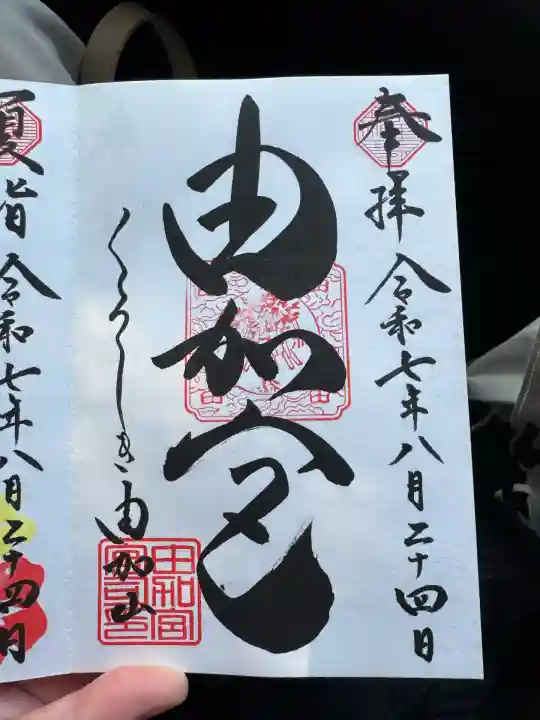 奉拝
令和七年八月二十四日
由加宮
くらしき由加山
夏詣
令和七年八月二十四日